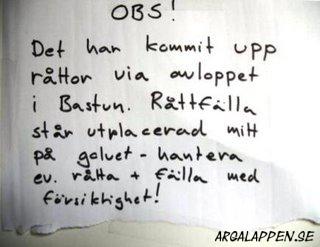 OBS!
Det har kommit upp
råttor via avloppet
i Bastun. Råttfälla
står utplacerad mitt
på golvet - hantera
ev. råtta + fälla med
försiktighet!
ARGALAPPEN.SE